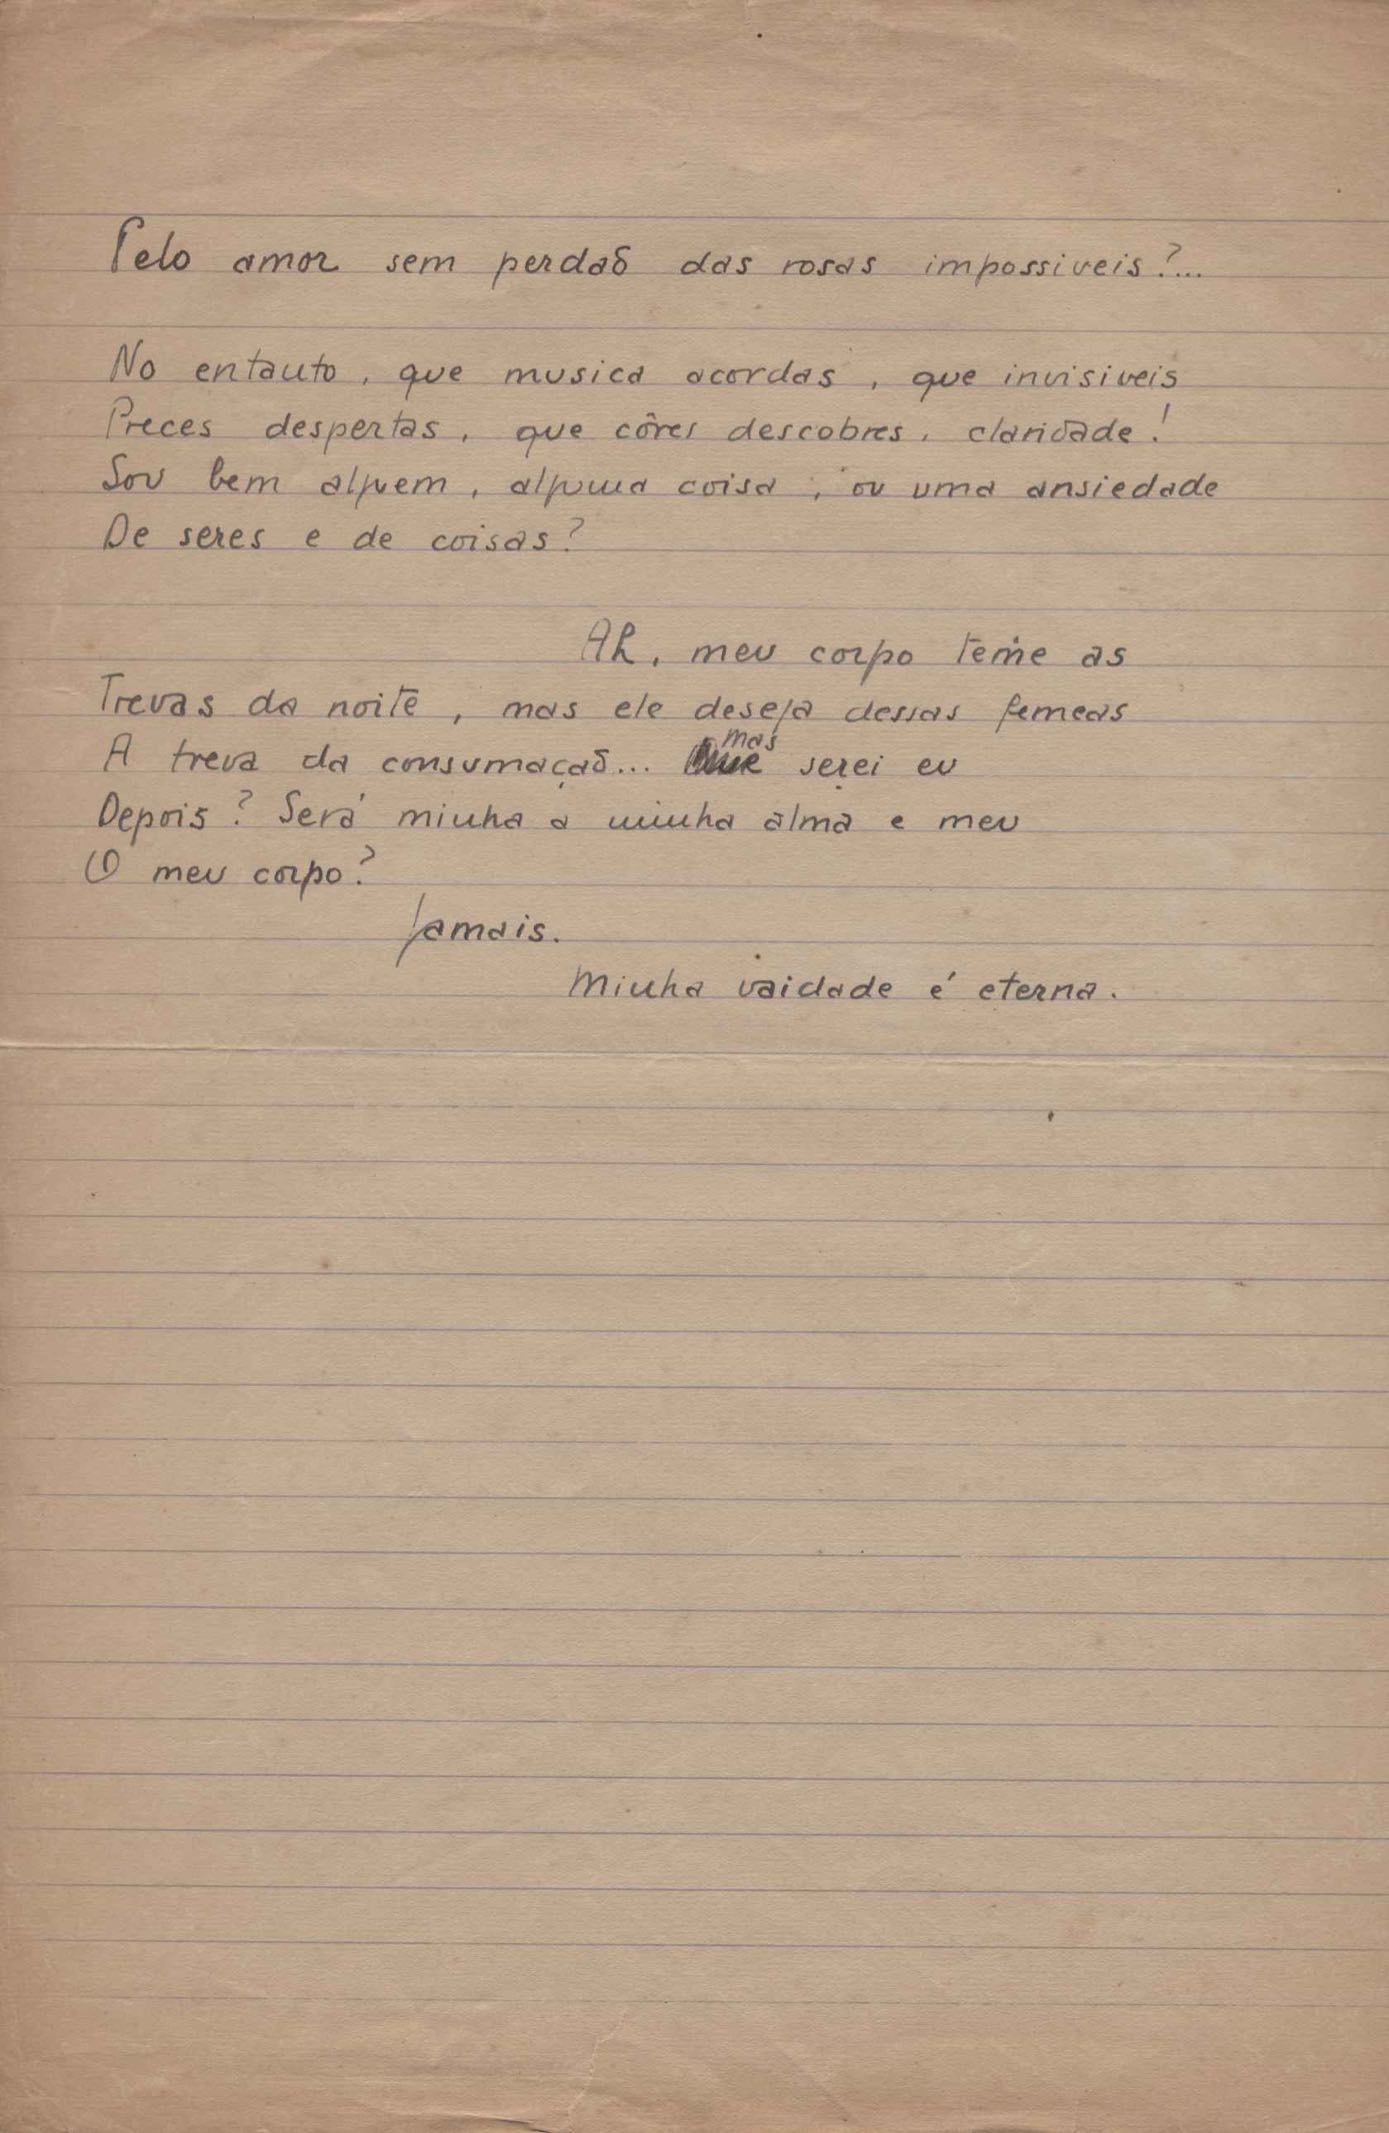 Pelo amor sem perdaõ das rosas impossiveis?...
No entanto, que musica acordas, que invisiveis
Preces despertas, que côres descobres, claridade!
Sou bem alguem, alguma coisa, ou uma ansiedade
De seres e de coisas?
Ah, meu corpo teme as
Trevas da noite, mas ele deseja dessas femeas
A treva da consumaçaõ... mas serei eu
Depois? Será minha a minha alma e meu
O meu corpo?
Jamais.
Minha vaidade é eterna.